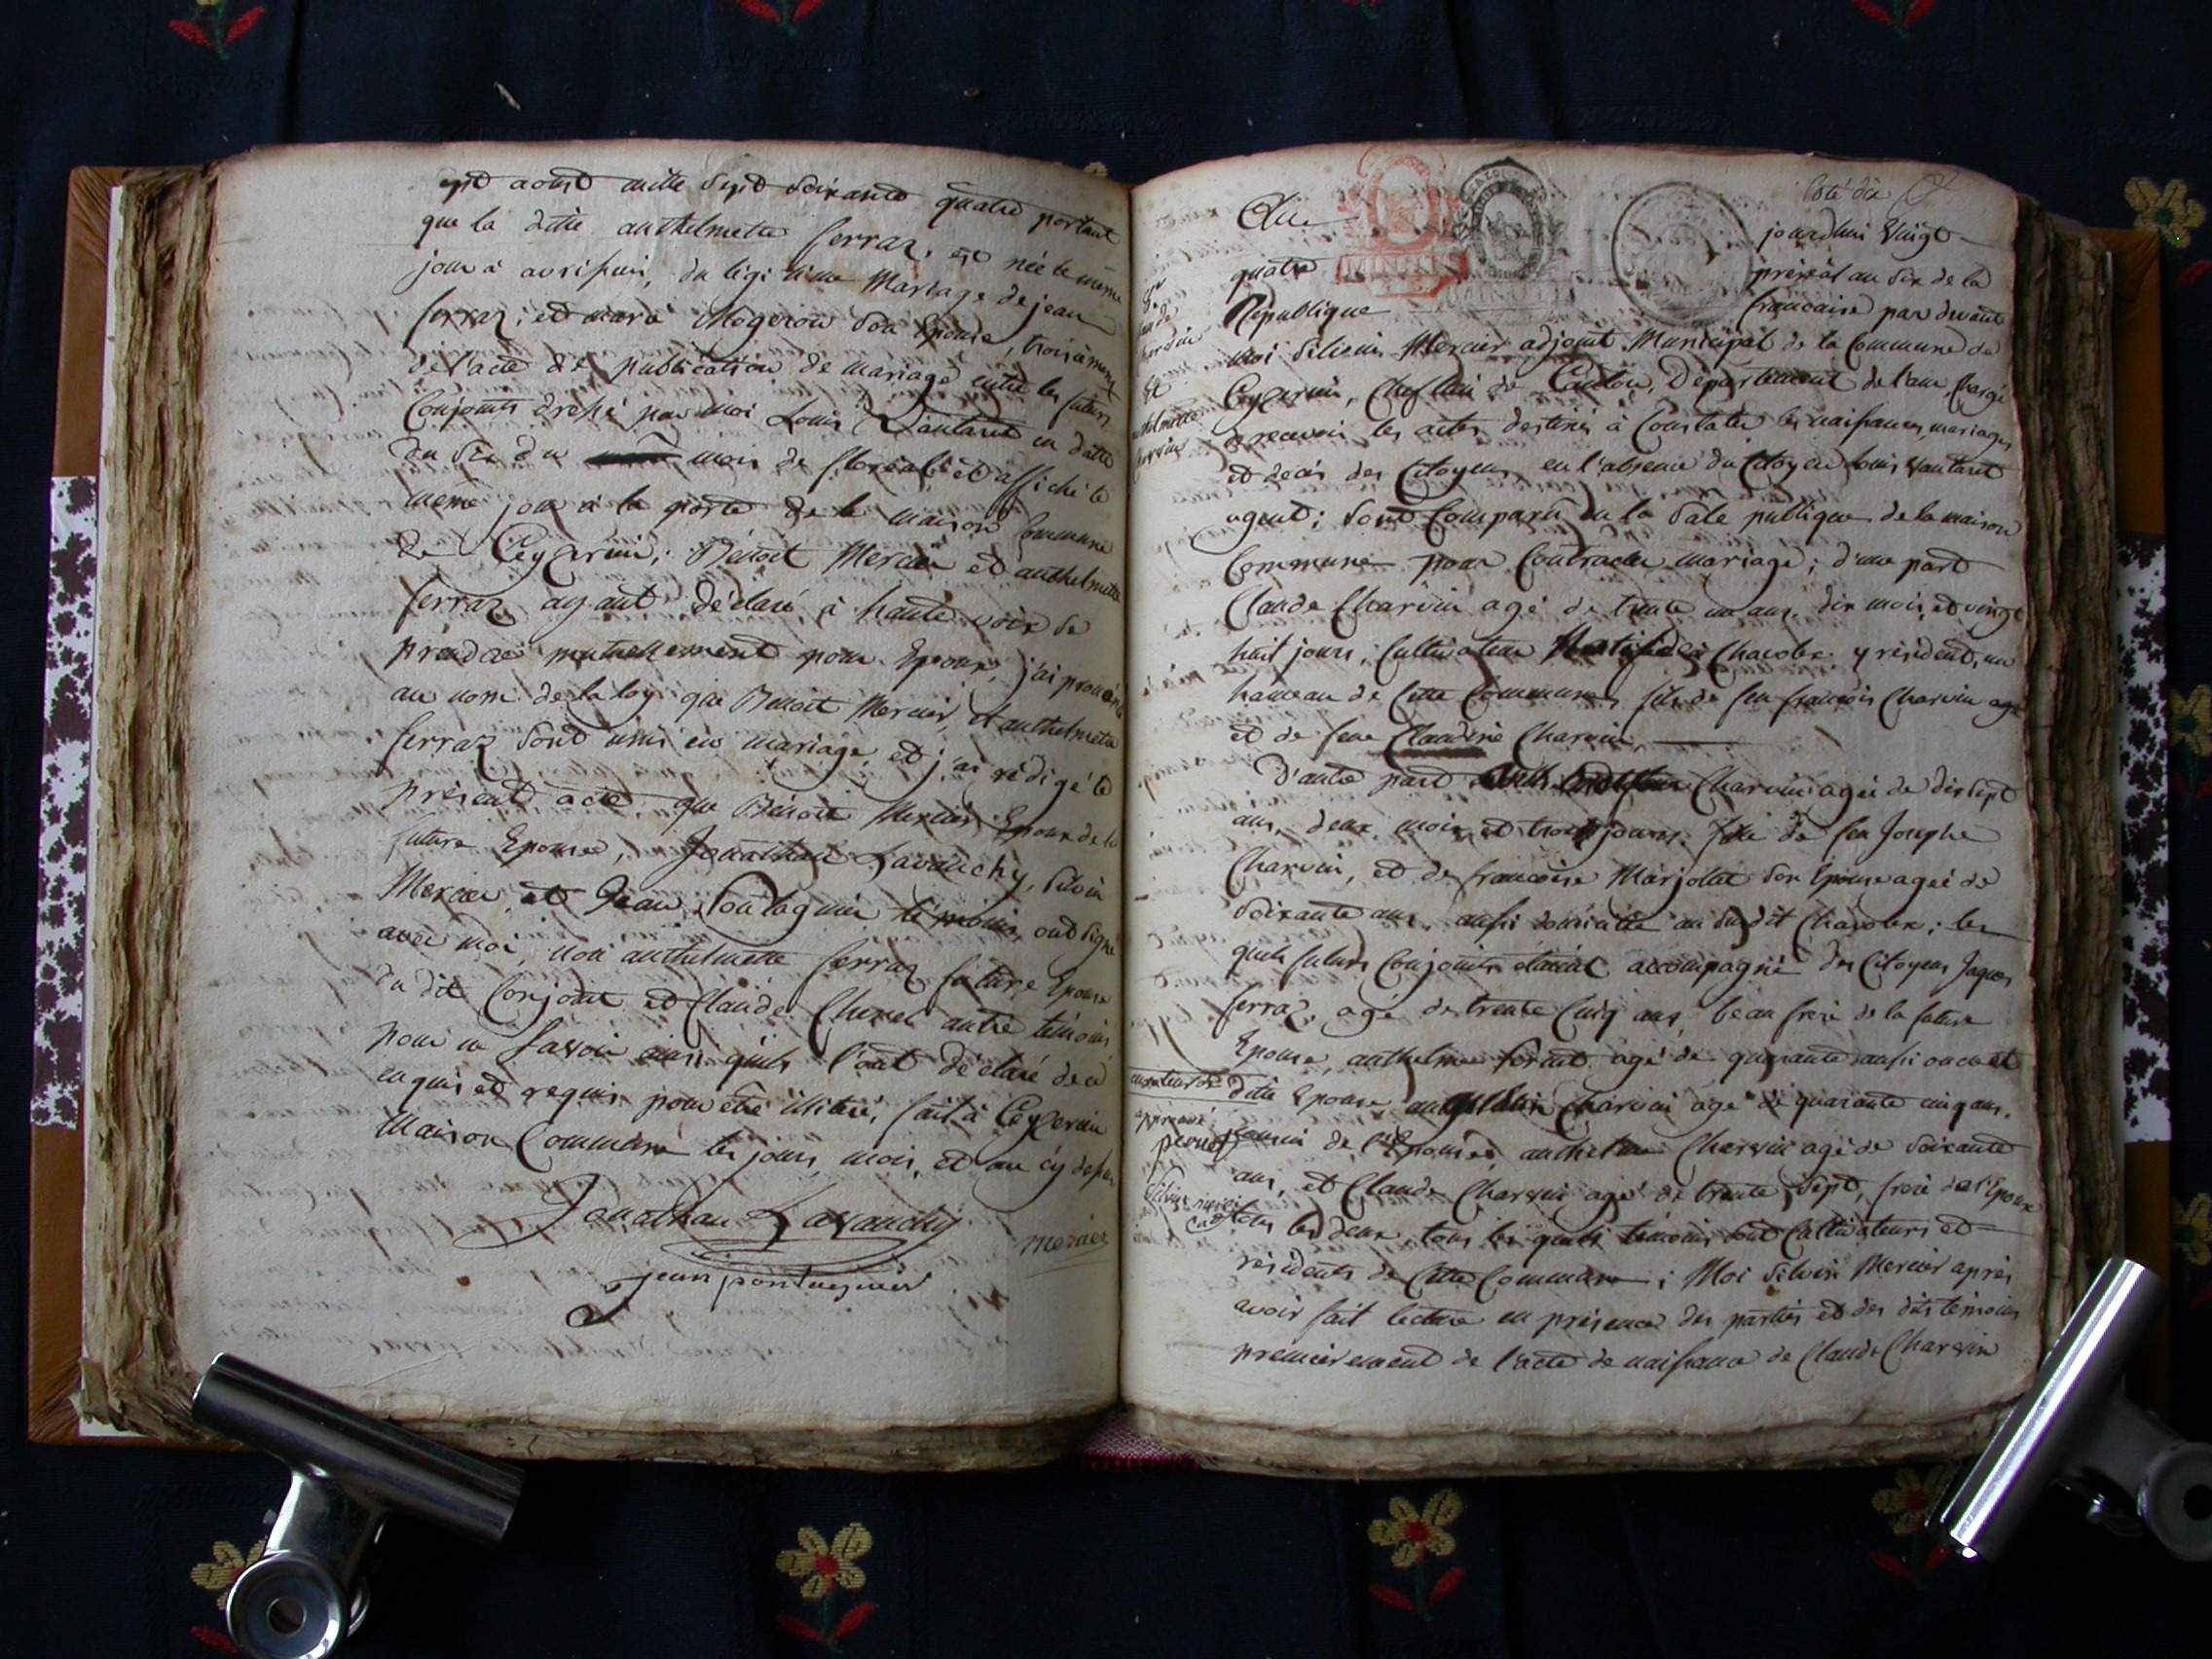 août mille sept soixante quatre portant
que la ditte anthelmette ferraz, est née le même
jour à avrifieu, du légitime Mariage de jean
ferraz, et Mogeron son Epouse, troisiement
de l'acte de publication de mariage entre les futurs
Conjoints dressé par moi Louis Vautaret en datte
du Six du mois de floreal et affiché le
même jour à la porte de la maison Commune
de Ceyzerieu; Benoit Mercier et anthelmette
ferraz ayant déclaré à haute voix se
prendre mutuellement pour Epoux, j'ai prononcé
au nom de la loy que Benoit Mercier, et anthelmette
ferraz sont unis en mariage, et j'ai rédigé le
présent acte que Benoit Mercier Epoux de la
future Epouse, Jonathan Lavanchy, Silvin
Mercier, et Jean Pontagnier témoins, ont signé
avec moi, non anthelmette ferraz future Epouse
du dit Conjoint et Claude autre témoin
pour ne savoir ainsi qu'ils l'ont déclaré de ce
enquis et requis pour être illitéré, fait à Ceyzerieu
Maison Commune les jours, mois, et an cy dessus
Jonathan Lavanchy
mercier
jean pontagnier
Coté dix
jourdhui Vingt
quatre prérial an Six de la
Republique francaise par devant
moi Silvin Mercier adjoint Municipal de la Commune de
Ceyzerieu, Chef lieu de Canton, Département de l'ain, Chargé
a recevoir les actes destinés à Constater les naissances, mariages
et décès des Citoyens en l'absence du Citoyen Louis Vautaret
agent; Sont Comparu en la Sale publique de la maison
Commune pour Contracter mariage; d'une part
Claude Charvin agé de trente un ans, dix mois, et vingt
huit jours, Cultivateur y résident, un
hameau de Cette Commune, fils de feu françois Charvin
et de feue Claudine Charvin,
D'autre part Charvin agée de dix sept
ans, deux mois, et trois jours, fille de feu Josephe
Charvin, et de francoise Marjollet Son Epouse agée de
Soixante ans, aussi domiciliée au Sudit; les
quels futurs Conjoints étaient accompagné des Citoyens Jaques
ferraz, agé de trente Cinq ans, beau frere de la future
Epouse, anthelme agé de quarante
ditte Epouse Charvin agé de quarante cinq ans,
de l'Epouse, anthelme Charvin agé de Soixante
ans, et Claude Charvin agé de trente Sept, frere de l'Epoux
tous les deux, tous les quels témoins sont Cultivateurs et
résidents de Cette Commune; Moi Silvin Mercier après
avoir fait lecture en présence des parties et des dits témoins
premierement de l'acte de naissance de Claude Charvin